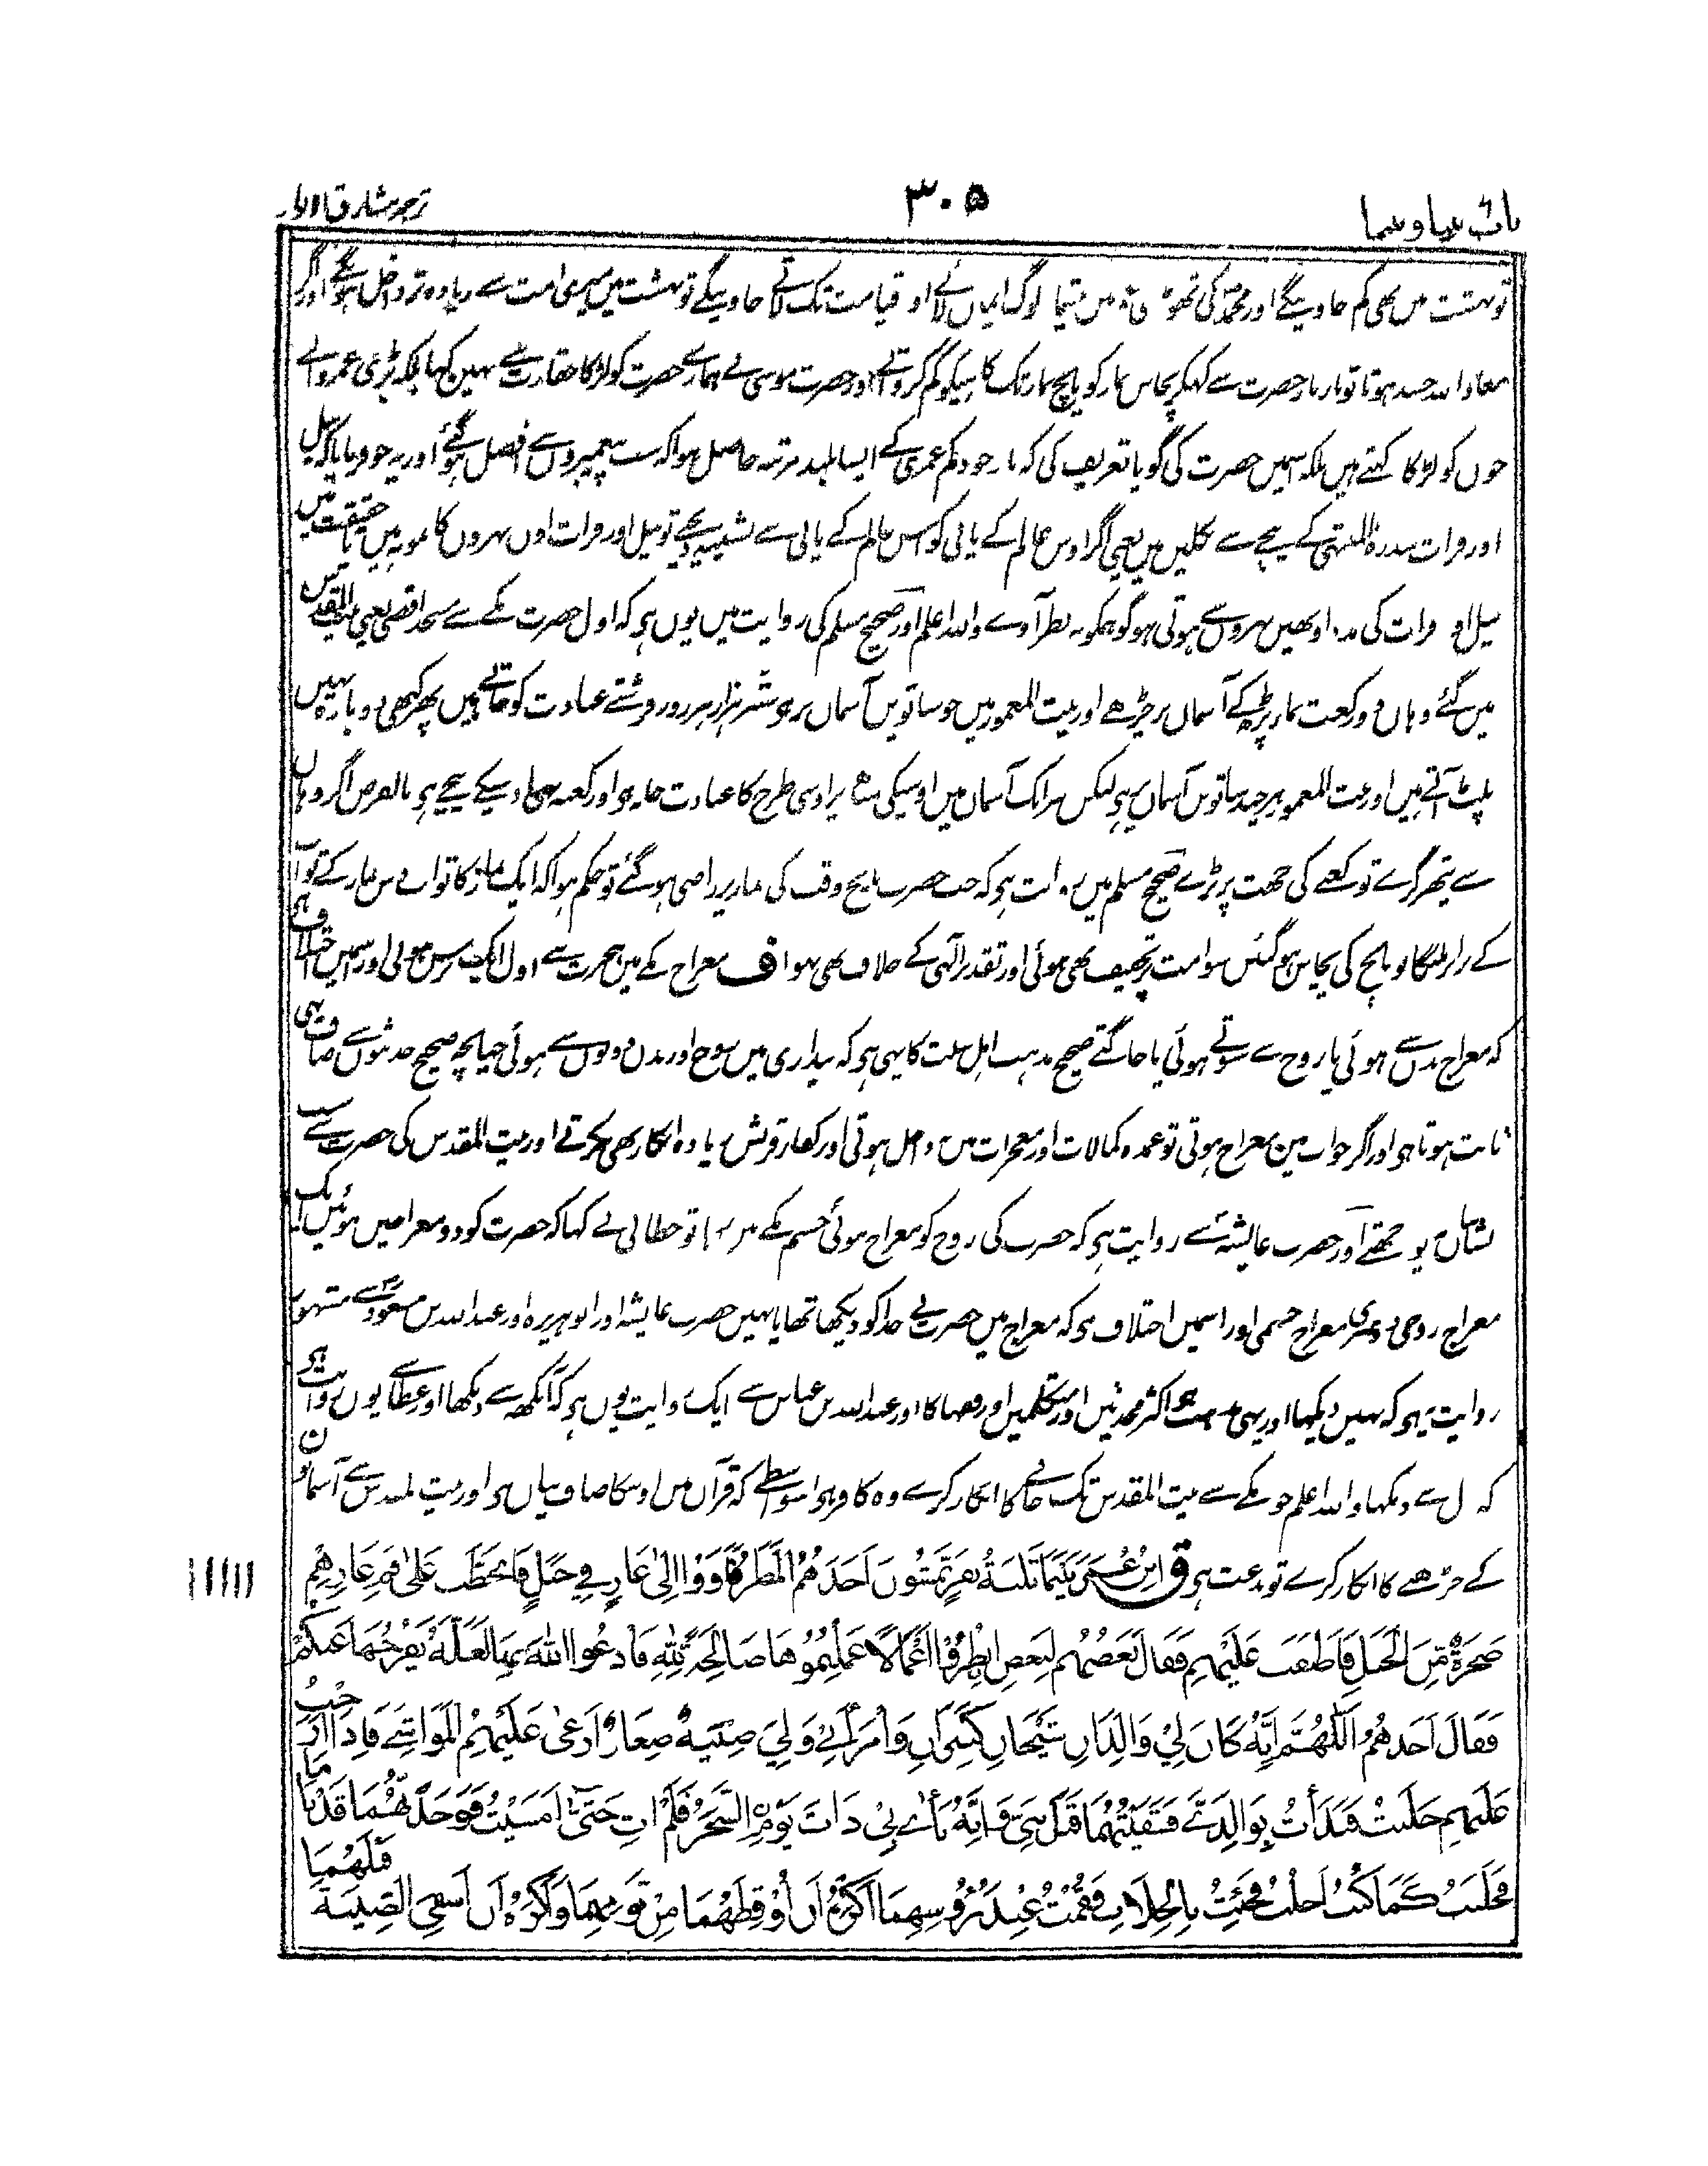 باب بینا و بینما
۳۰۵
ترجمہ مشارق الانوار
تو بہشت میں بھی کم جاوینگے اور محمدؐ کی تھوڑی میں لوگ ایمان لائے اور قیامت تک لاتے جاوینگے تو بہشت میں میری امت سے زیادہ تر داخل ہونگے اور اگر
معاذ اللہ حسد ہوتا تو بار بار حضرت سے کہکر پچاس نماز کو پانچ نماز تک کاہیکو کم کرواتے اور حضرت موسی نے ہمارے حضرت کو لڑکا حقارت سے نہین کہا بلکہ بڑی عمر والے
جوان کو لڑکا کہتے ہیں بلکہ اسمیں حضرت کی گویا تعریف کی کہ باوجود کم عمری کے ایسا بلند مرتبہ حاصل ہوا کہ سب پیغمبروں سے افضل ہو گئے اور یہ جو فرمایا کہ نیل
اور فرات سدرۃ المنتہی کے نیچے سے نکلیں ہیں یعنی اگر اوس عالم کے پانی کو اس عالم کے پانی سے تشبیہ دیجے تو نیل اور فرات اون نہروں کا نمونہ ہیں یا حقیقت میں
نیل اور فرات کی مدد اونھیں نہروں سے ہوتی ہو گو ہمکو نہ نظر آوے واللہ اعلم اور صحیح مسلم کی روایت میں یوں ہی کہ اول حضرت مکے سے مسجد اقصی یعنی بیت المقدس
میں گئے وہاں دو رکعت نماز پڑھکے آسمان پر چڑھے اور بیت المعمور میں جو ساتویں آسمان پر ہی ستر ہزار ہر روز فرشتے عبادت کو جاتے ہیں پھر کبھی دوبارہ نہیں
پلٹ آتے ہیں اور بیت المعمور ہر چند ساتویں آسمان پر ہی لیکن ہر اک آسمان میں اوسیکی سیدھ پر اوسی طرح کا عبادت خانہ ہی اور کعبہ بھی اوسیکے نیچے ہی بالفرض اگر وہاں
سے پتھر گرے تو کعبے کی چھت پر پڑے صحیح مسلم میں روایت ہی کہ جب حضرت پانچ وقت کی نماز پر راضی ہو گئے تو حکم ہوا کہ ایک نماز کا ثواب دس نماز کے ثواب
کے برابر ملیگا تو پانچ کی پچاس ہو گئیں سو امت پر تخفیف بھی ہوئی اور تقدیر الٰہی کے خلاف بھی نہوا ف معراج مکے میں ہجرت سے اول ایک برس ہوئی اور اسمیں اختلاف ہی
کہ معراج بدن سے ہوئی یا روح سے سوتے ہوئی یا جاگتے صحیح مذہب اہل سنت کا یہی ہی کہ بیداری میں روح اور بدن دونوں سے ہوئی چنانچہ صحیح حدیثوں سے صاف یہی
ثابت ہوتا ہی اور اگر خواب مین معراج ہوتی تو عمدہ کمالات اور معجزات میں داخل نہوتی اور کفار قریش زیادہ انکار بھی نکرتے اور بیت المقدس کی حضرت سے سب
نشانیاں نہ پوچھتے اور حضرت عایشہؓ سے روایت ہی کہ حضرت کی روح کو معراج ہوئی جسم مکے میں رہا تو خطابی نے کہا کہ حضرت کو دو معراجیں ہوئیں ایک
معراج روحی دوسری معراج جسمی اور اسمیں اختلاف ہی کہ معراج میں حضرت نے خدا کو دیکھا تھا یا نہیں حضرت عایشہ اور ابو ہریرہ اور عبداللہ بن مسعودؓ سے مشہور
روایت یہ ہی کہ نہیں دیکھا اور یہی مذہب ہی اکثر محدثین اور متکلمین اور فقہا کا اور عبداللہ بن عباس سے ایک روایت یوں ہی کہ آنکھ سے دیکھا اور عطا سے یوں روایت ہی
کہ دل سے دیکھا واللہ اعلم جو مکے سے بیت المقدس تک جانے کا انکار کرے وہ کافر ہی اسواسطے کہ قرآن میں اوسکا صاف بیان ہی اور بیت المقدس سے آسمانوں
کے چڑھنے کا انکار کرے تو بدعت ہی ق ابْنُ عُمَرَ بَيْنَمَا ثَلٰثَةُ نَفَرٍ يَّتَمَشَّوْنَ اَخَذَهُمُ الْمَطَرُ فَاَوَوْا اِلٰى غَارٍ فِي جَبَلٍ فَانْحَطَّتْ عَلٰى فَمِ غَارِهِمْ
صَخْرَةٌ مِّنَ الْجَبَلِ فَاَطْبَقَتْ عَلَيْهِمْ فَقَالَ بَعْضُهُمْ لِبَعْضٍ اُنْظُرُوْا اَعْمَالًا عَمِلْتُمُوْهَا صَالِحَةً لِلّٰهِ فَادْعُوا اللّٰهَ بِهَا لَعَلَّهُ يُفَرِّجُهَا عَنْكُمْ
فَقَالَ اَحَدُهُمُ اللّٰهُمَّ اِنَّهُ كَانَ لِيْ وَالِدَانِ شَيْخَانِ كَبِيْرَانِ وَامْرَأَتِيْ وَلِيَ صِبْيَةٌ صِغَارٌ اَرْعٰى عَلَيْهِمُ الْمَوَاشِيَ فَاِذَا اَرَحْتُ
عَلَيْهِمْ حَلَبْتُ فَبَدَأْتُ بِوَالِدَيَّ فَسَقَيْتُهُمَا قَبْلَ بَنِيَّ وَاِنَّهُ نَأٰى بِيْ ذَاتَ يَوْمٍ الشَّجَرُ فَلَمْ اٰتِ حَتّٰى اَمْسَيْتُ فَوَجَدْتُّهُمَا قَدْ نَامَا
فَحَلَبْتُ كَمَا كُنْتُ اَحْلُبُ فَجِئْتُ بِالْحِلَابِ فَقُمْتُ عِنْدَ رُؤُسِهِمَا اَكْرَهُ اَنْ اُوْقِظَهُمَا مِنْ نَوْمِهِمَا وَاَكْرَهُ اَنْ اَسْقِيَ الصِّبْيَةَ قَبْلَهُمَا